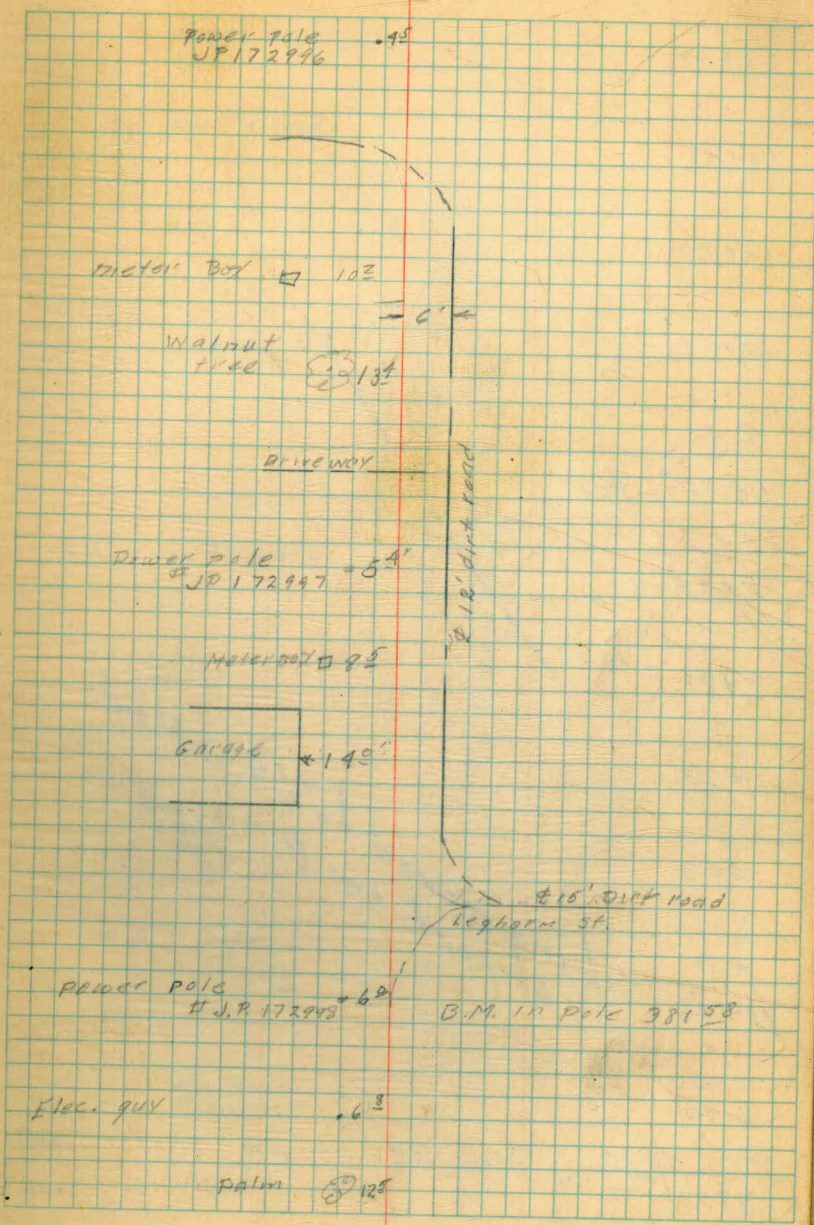 Power pole .4 5
JP 172996
meter Box 10 2
6'
Walnut
tree 13 4
Driveway
℄ 12' dirt road
Power pole 5 4'
# JP 172997
Meter box 8 5
Garage 14 0'
℄ 15' Dirt road
Leghorn St.
power pole
# J.P. 172998 6 0
B.M. in pole 381 58
Elec. guy .6 8
palm 12 5